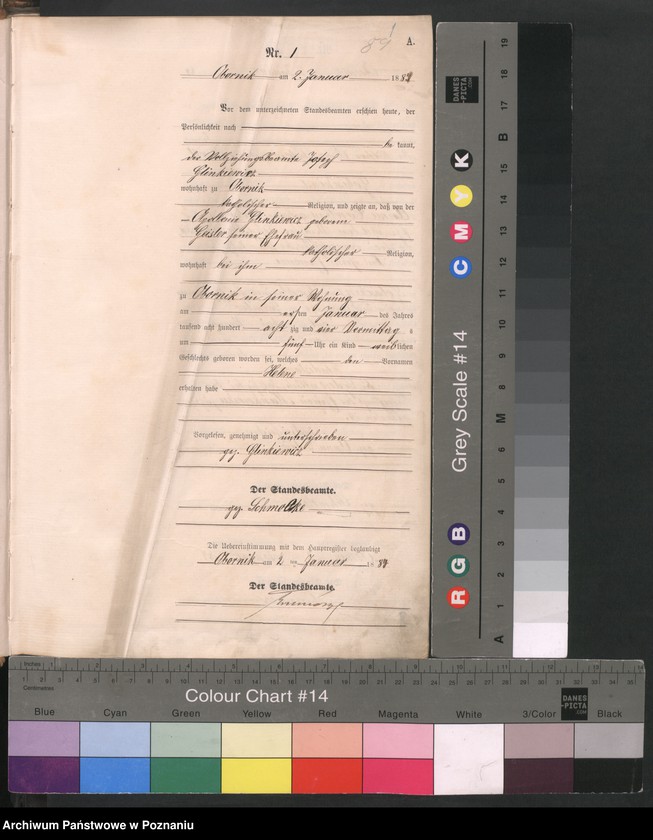 A.
Nr. 1
Obornik am 2. Januar 1884
Vor dem unterzeichneten Standesbeamten erschien heute, der
Persönlichkeit nach
be kannt,
der Vollziehungsbeamte Joseph
Glinkiewicz
wohnhaft zu Obornik
katholischer Religion, und zeigte an, daß von der
Apollonia Glinkiewicz geborene
Geisler seiner Ehefrau
katholischer Religion,
wohnhaft bei ihm
zu Obornik in seiner Wohnung
am ersten Januar des Jahres
tausend acht hundert acht zig und vier Vormittag s
um fünf Uhr ein Kind weiblichen
Geschlechts geboren worden sei, welches den Vornamen
Helene
erhalten habe
Vorgelesen, genehmigt und unterschrieben
gez. Glinkiewicz
Der Standesbeamte.
gez. Schmolke
Die Uebereinstimmung mit dem Hauptregister beglaubigt
Obornik am 2 ten Januar 1884
Der Standesbeamte.
Grey Scale #14
R G B C M Y K
A 1 2 3 4 5 6 M 8 9 10 11 12 13 14 15 B 17 18 19
DANES-PICTA.COM
Inches 1 2 3 4 5 6 7 8 9 10 11 12 13 14
Centimetres
Colour Chart #14
DANES-PICTA.COM
Blue Cyan Green Yellow Red Magenta White 3/Color Black
Archiwum Państwowe w Poznaniu